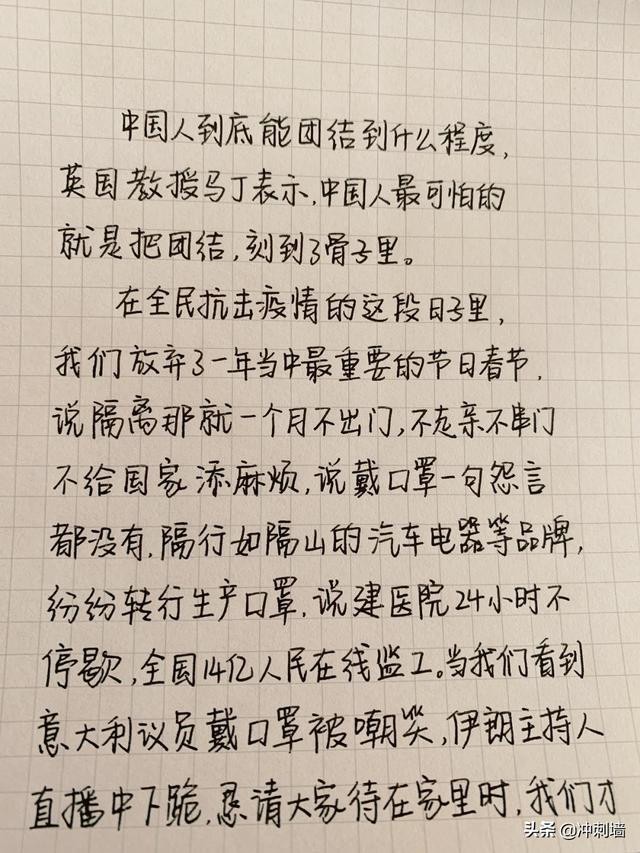 中国人到底能团结到什么程度,
英国教授马丁表示,中国人最可怕的
就是把团结,刻到了骨子里。
在全民抗击疫情的这段日子里,
我们放弃了一年当中最重要的节日春节,
说隔离那就一个月不出门,不走亲不串门
不给国家添麻烦,说戴口罩一句怨言
都没有,隔行如隔山的汽车电器等品牌,
纷纷转行生产口罩,说建医院24小时不
停歇,全国14亿人民在线监工。当我们看到
意大利议员戴口罩被嘲笑,伊朗主持人
直播中下跪,恳请大家待在家里时,我们才
头条 @冲刺墙